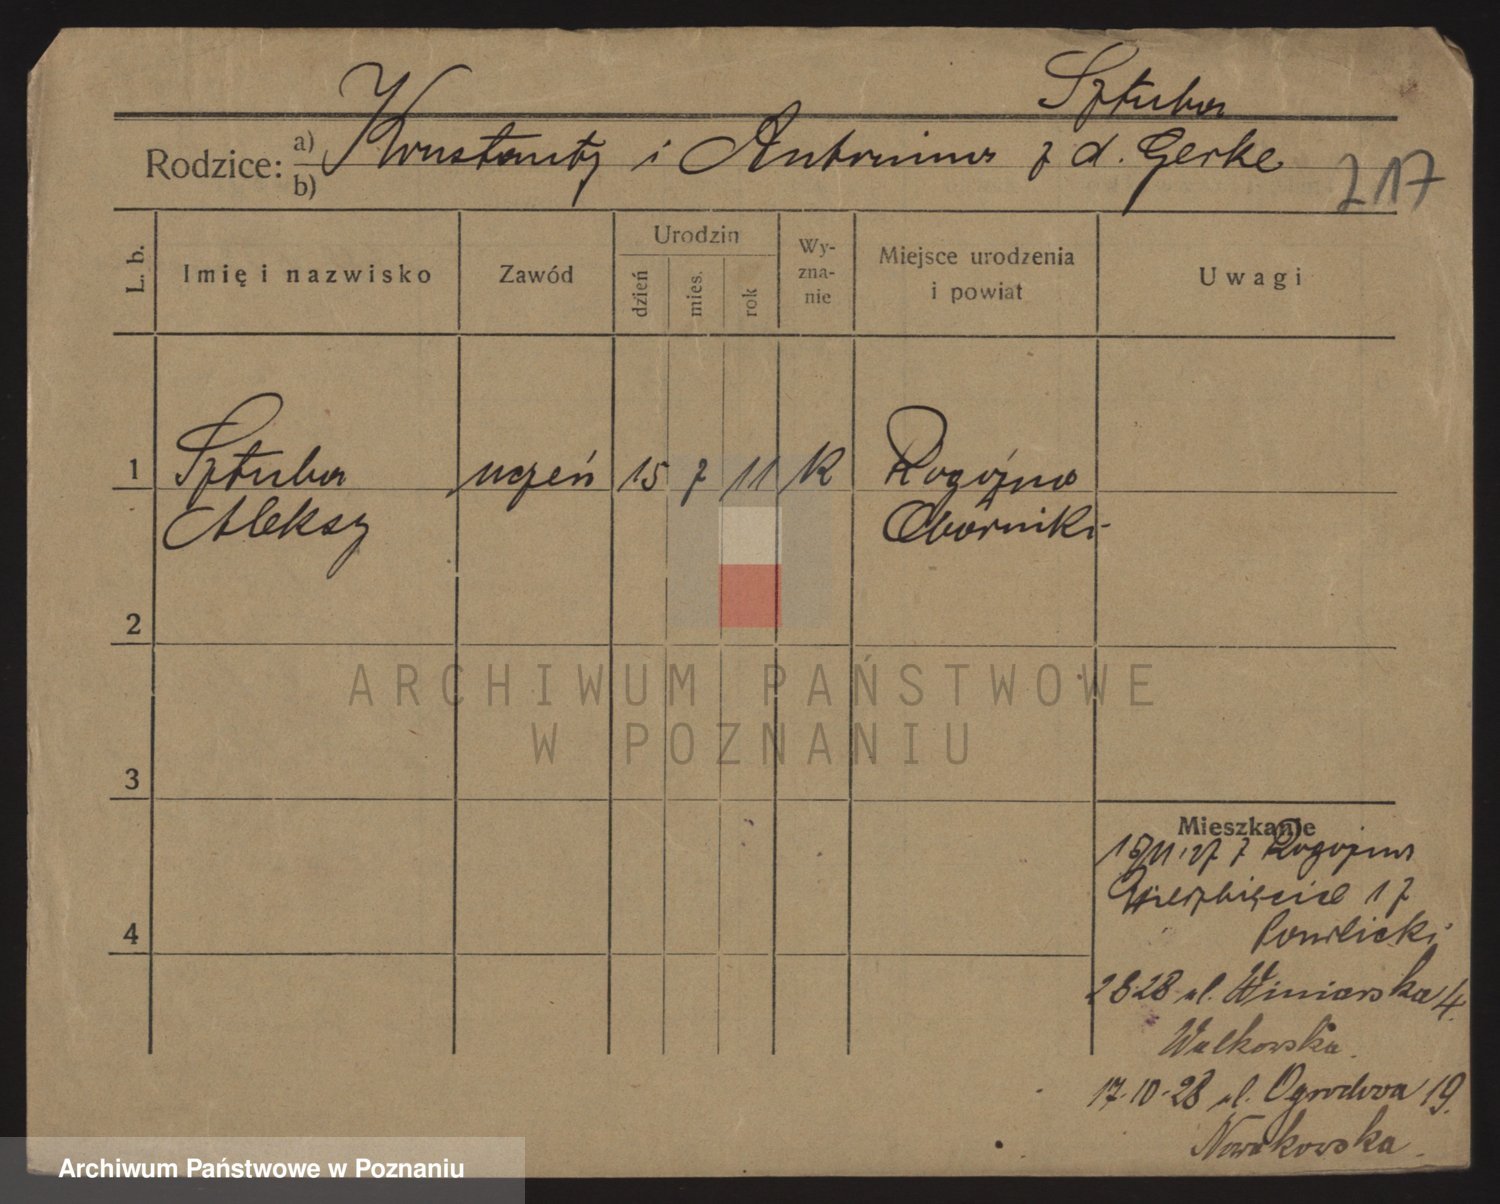 Sztuba
Rodzice: a) Konstanty i Antonina z d. Gerke
b)
217
L. b.
Imię i nazwisko
Zawód
Urodzin
dzień
mies.
rok
Wy-
zna-
nie
Miejsce urodzenia
i powiat
Uwagi
1 Sztuba uczeń 15 7 11 K Rogóźno
Aleksy Oborniki
2
3
4
Mieszkanie
27 z Rogoźna
Wierzbięcice 17
28 ul. Winiarska 4.
Walkowska.
17.10.28 ul. Ogrodowa 19.
Nowakowska.
ARCHIWUM PAŃSTWOWE
W POZNANIU
Archiwum Państwowe w Poznaniu